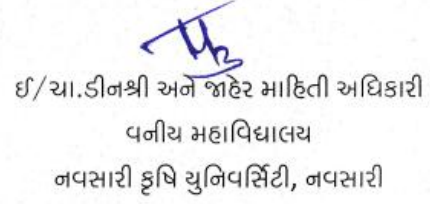 ઈ/ચા.ડીનશ્રી અને જાહેર માહિતી અધિકારી
વનીય મહાવિદ્યાલય
નવસારી કૃષિ યુનિવર્સિટી, નવસારી